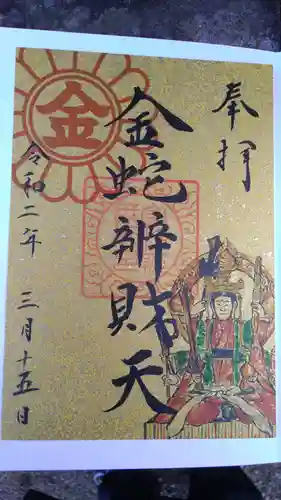 奉拝
金蛇辨財天
金
令和二年 三月十五日